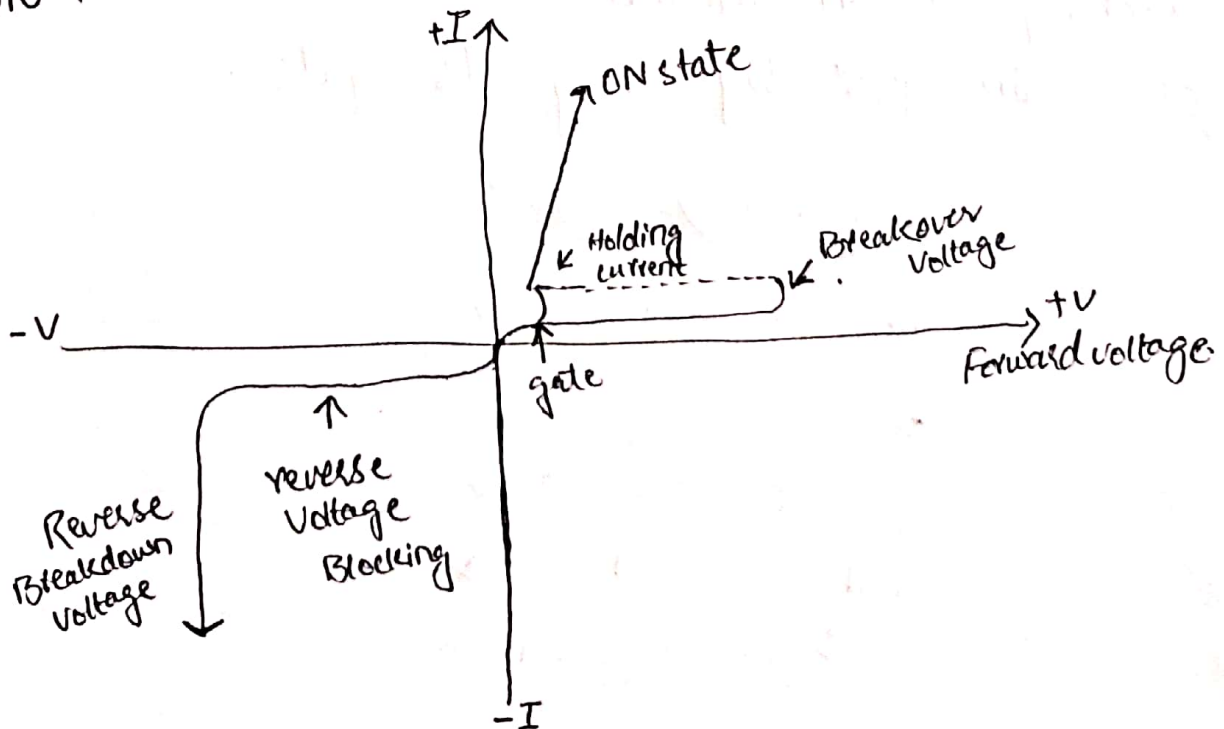 +I
ON state
Holding
current
Breakover
Voltage
-V
+V
Forward voltage.
gate
reverse
Voltage
Blocking
Reverse
Breakdown
Voltage
-I